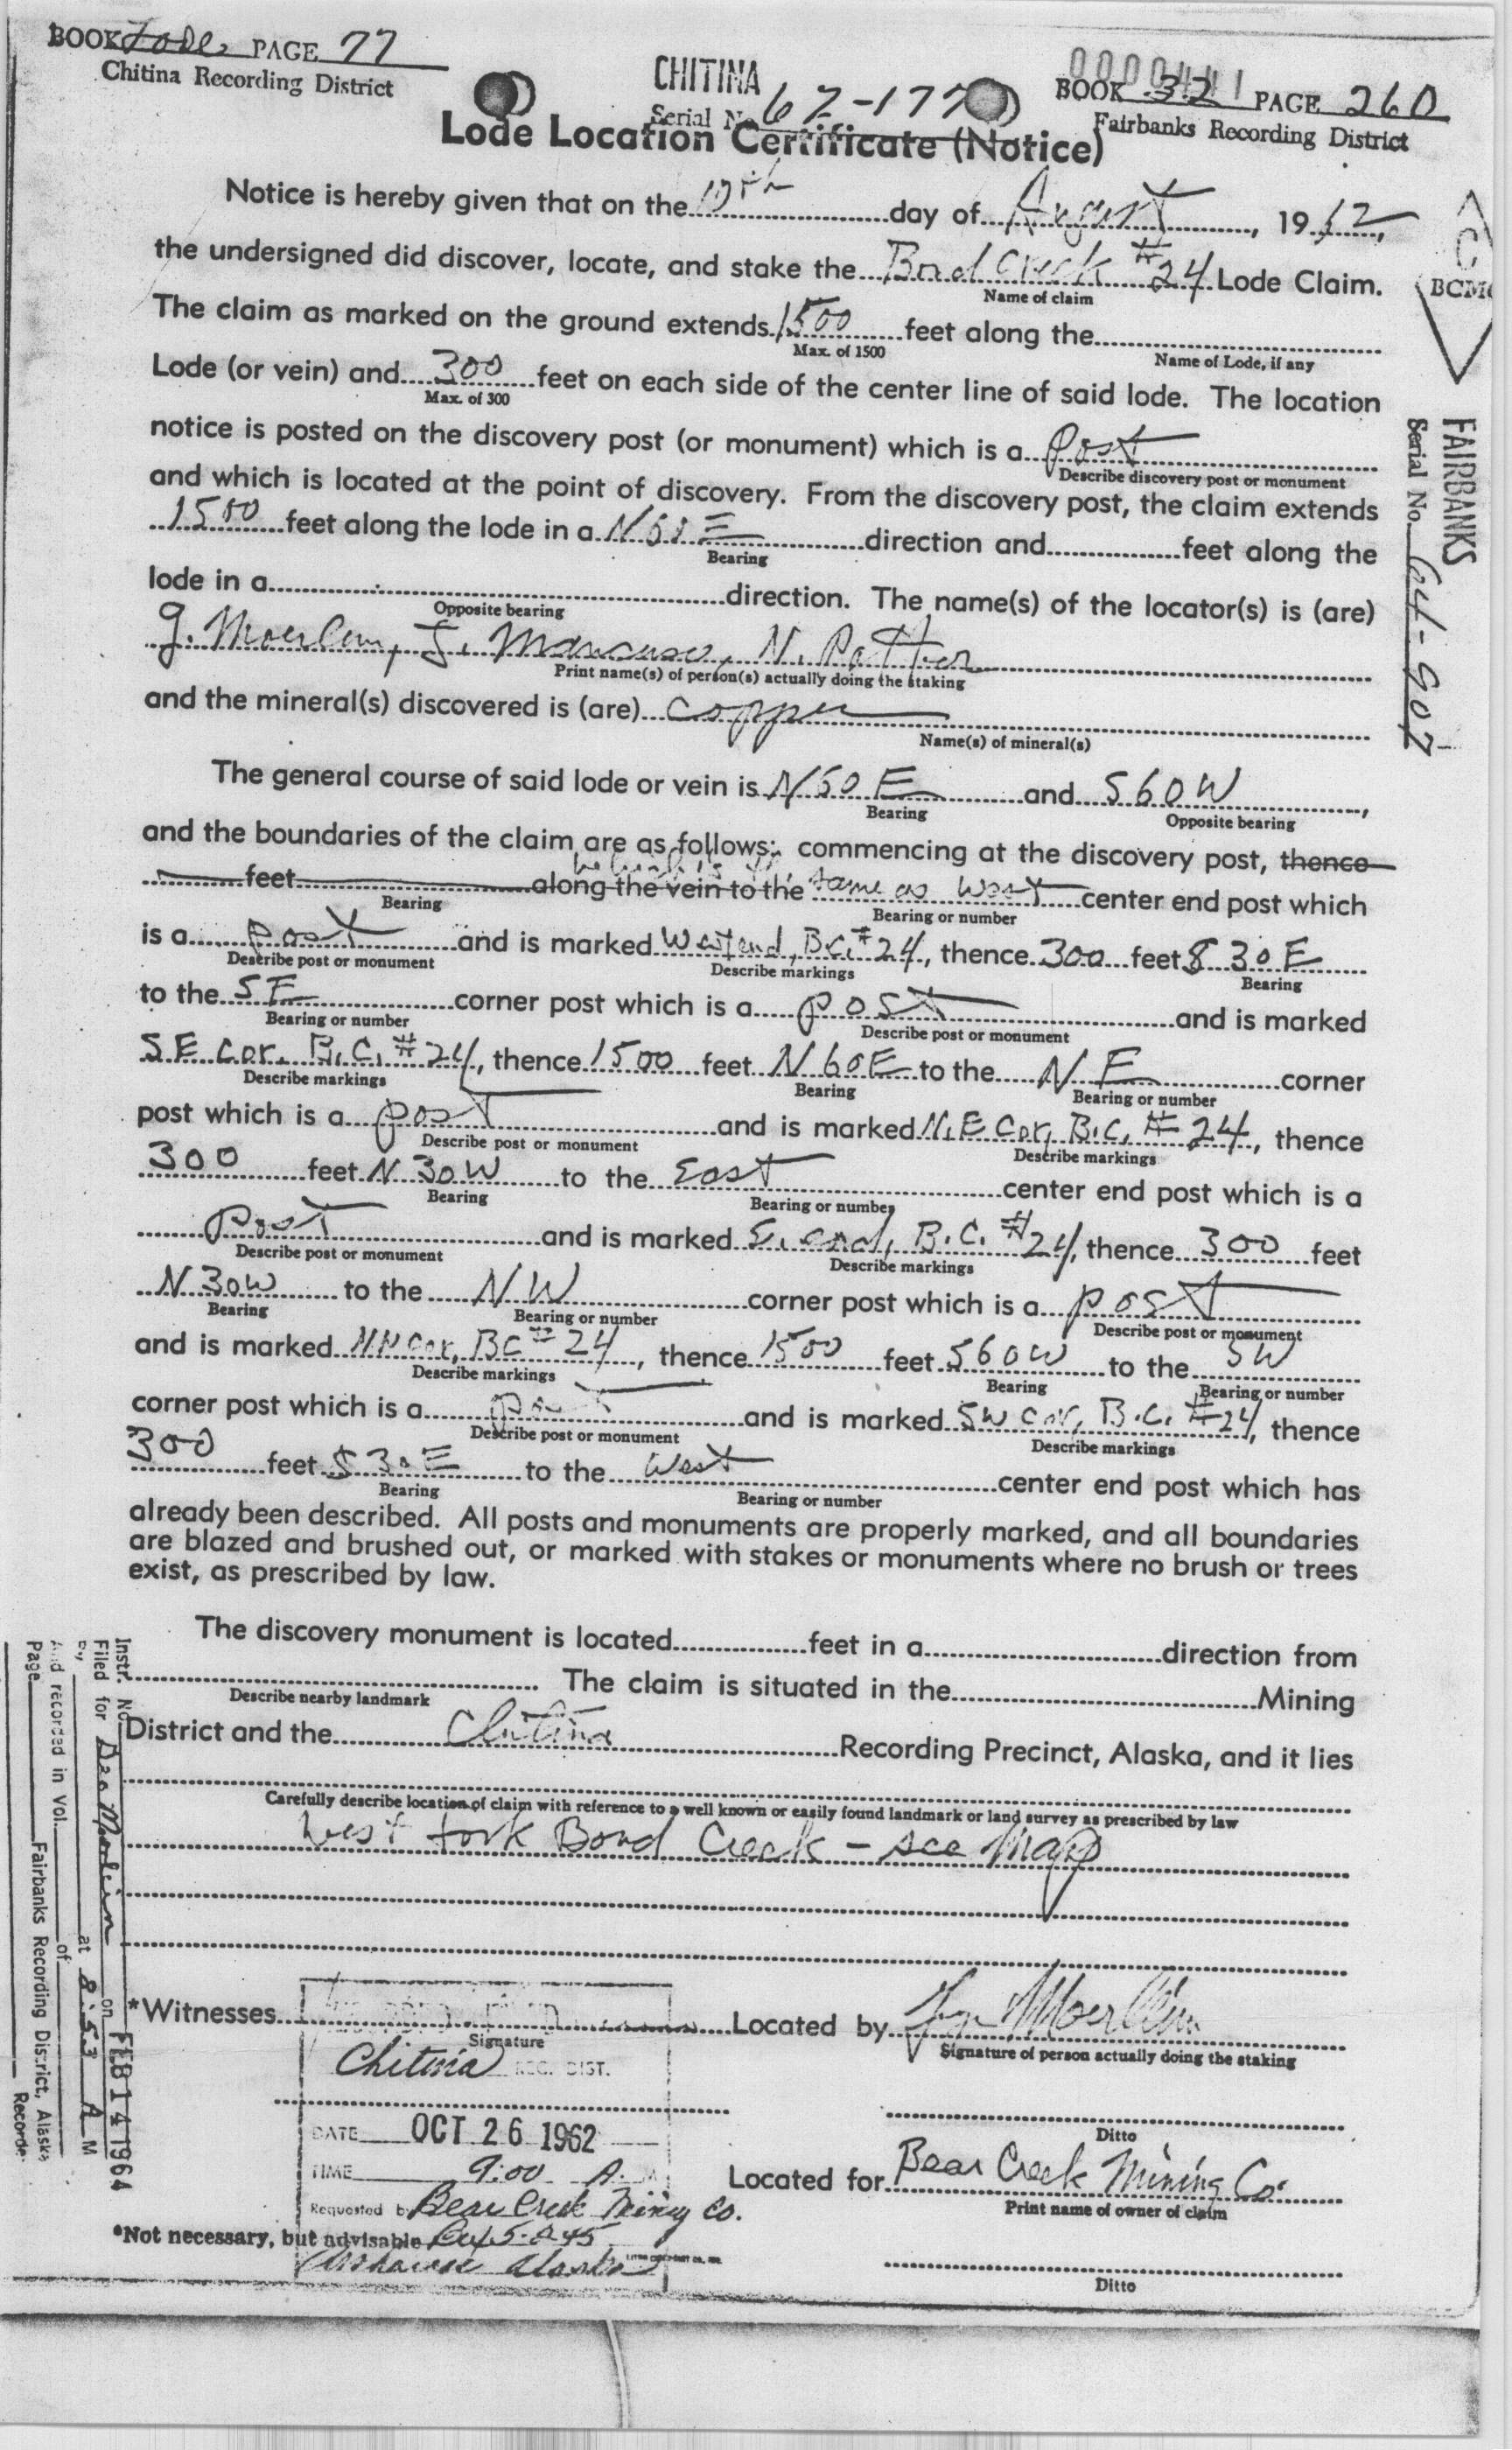 BOOK Lode PAGE 77
Chitina Recording District
CHITINA
Serial No. 62-177
0000441
BOOK 32 PAGE 260
Fairbanks Recording District
Lode Location Certificate (Notice)
Notice is hereby given that on the 19th day of August, 1962,
the undersigned did discover, locate, and stake the Bond Creek #24 Lode Claim.
Name of claim
The claim as marked on the ground extends 1500 feet along the
Max. of 1500 Name of Lode, if any
Lode (or vein) and 300 feet on each side of the center line of said lode. The location
Max. of 300
notice is posted on the discovery post (or monument) which is a post
Describe discovery post or monument
and which is located at the point of discovery. From the discovery post, the claim extends
1500 feet along the lode in a N60E direction and feet along the
Bearing
lode in a direction. The name(s) of the locator(s) is (are)
Opposite bearing
J. Moerlein, J. Mancuso, N. Potter
Print name(s) of person(s) actually doing the staking
and the mineral(s) discovered is (are) copper
Name(s) of mineral(s)
The general course of said lode or vein is N60E and S60W,
Bearing Opposite bearing
and the boundaries of the claim are as follows: commencing at the discovery post, thence
which is the
feet along the vein to the same as West center end post which
Bearing Bearing or number
is a post and is marked West end, B.C. #24, thence 300 feet S 30 E
Describe post or monument Describe markings Bearing
to the SE corner post which is a post and is marked
Bearing or number Describe post or monument
SE cor. B.C. #24, thence 1500 feet N60E to the NE corner
Describe markings Bearing Bearing or number
post which is a post and is marked N.E Cor, B.C. #24, thence
Describe post or monument Describe markings
300 feet N 30W to the East center end post which is a
Bearing Bearing or number
post and is marked E. end, B.C. #24, thence 300 feet
Describe post or monument Describe markings
N30W to the NW corner post which is a post
Bearing Bearing or number Describe post or monument
and is marked NW cor, BC #24, thence 1500 feet S60W to the SW
Describe markings Bearing Bearing or number
corner post which is a post and is marked SW cor, B.C. #24, thence
Describe post or monument Describe markings
300 feet S30E to the West center end post which has
Bearing Bearing or number
already been described. All posts and monuments are properly marked, and all boundaries
are blazed and brushed out, or marked with stakes or monuments where no brush or trees
exist, as prescribed by law.
The discovery monument is located feet in a direction from
The claim is situated in the Mining
Describe nearby landmark
District and the Chitina Recording Precinct, Alaska, and it lies
Carefully describe location of claim with reference to a well known or easily found landmark or land survey as prescribed by law
West fork Bond Creek - see Map
*Witnesses Located by Moerlein
Signature Signature of person actually doing the staking
Chitina REC. DIST.
Ditto
DATE OCT 26 1962
TIME 9:00 A. M
Located for Bear Creek Mining Co.
Print name of owner of claim
Requested by Bear Creek Mining Co.
*Not necessary, but advisable
Alaska
Ditto
BCMC
FAIRBANKS
Serial No. 64-907
Instr. No.
Filed for Geo Moerlein on FEB 14 1964
By, at 8:53 A M
And recorded in Vol. of
Page Fairbanks Recording District, Alaska
Recorder